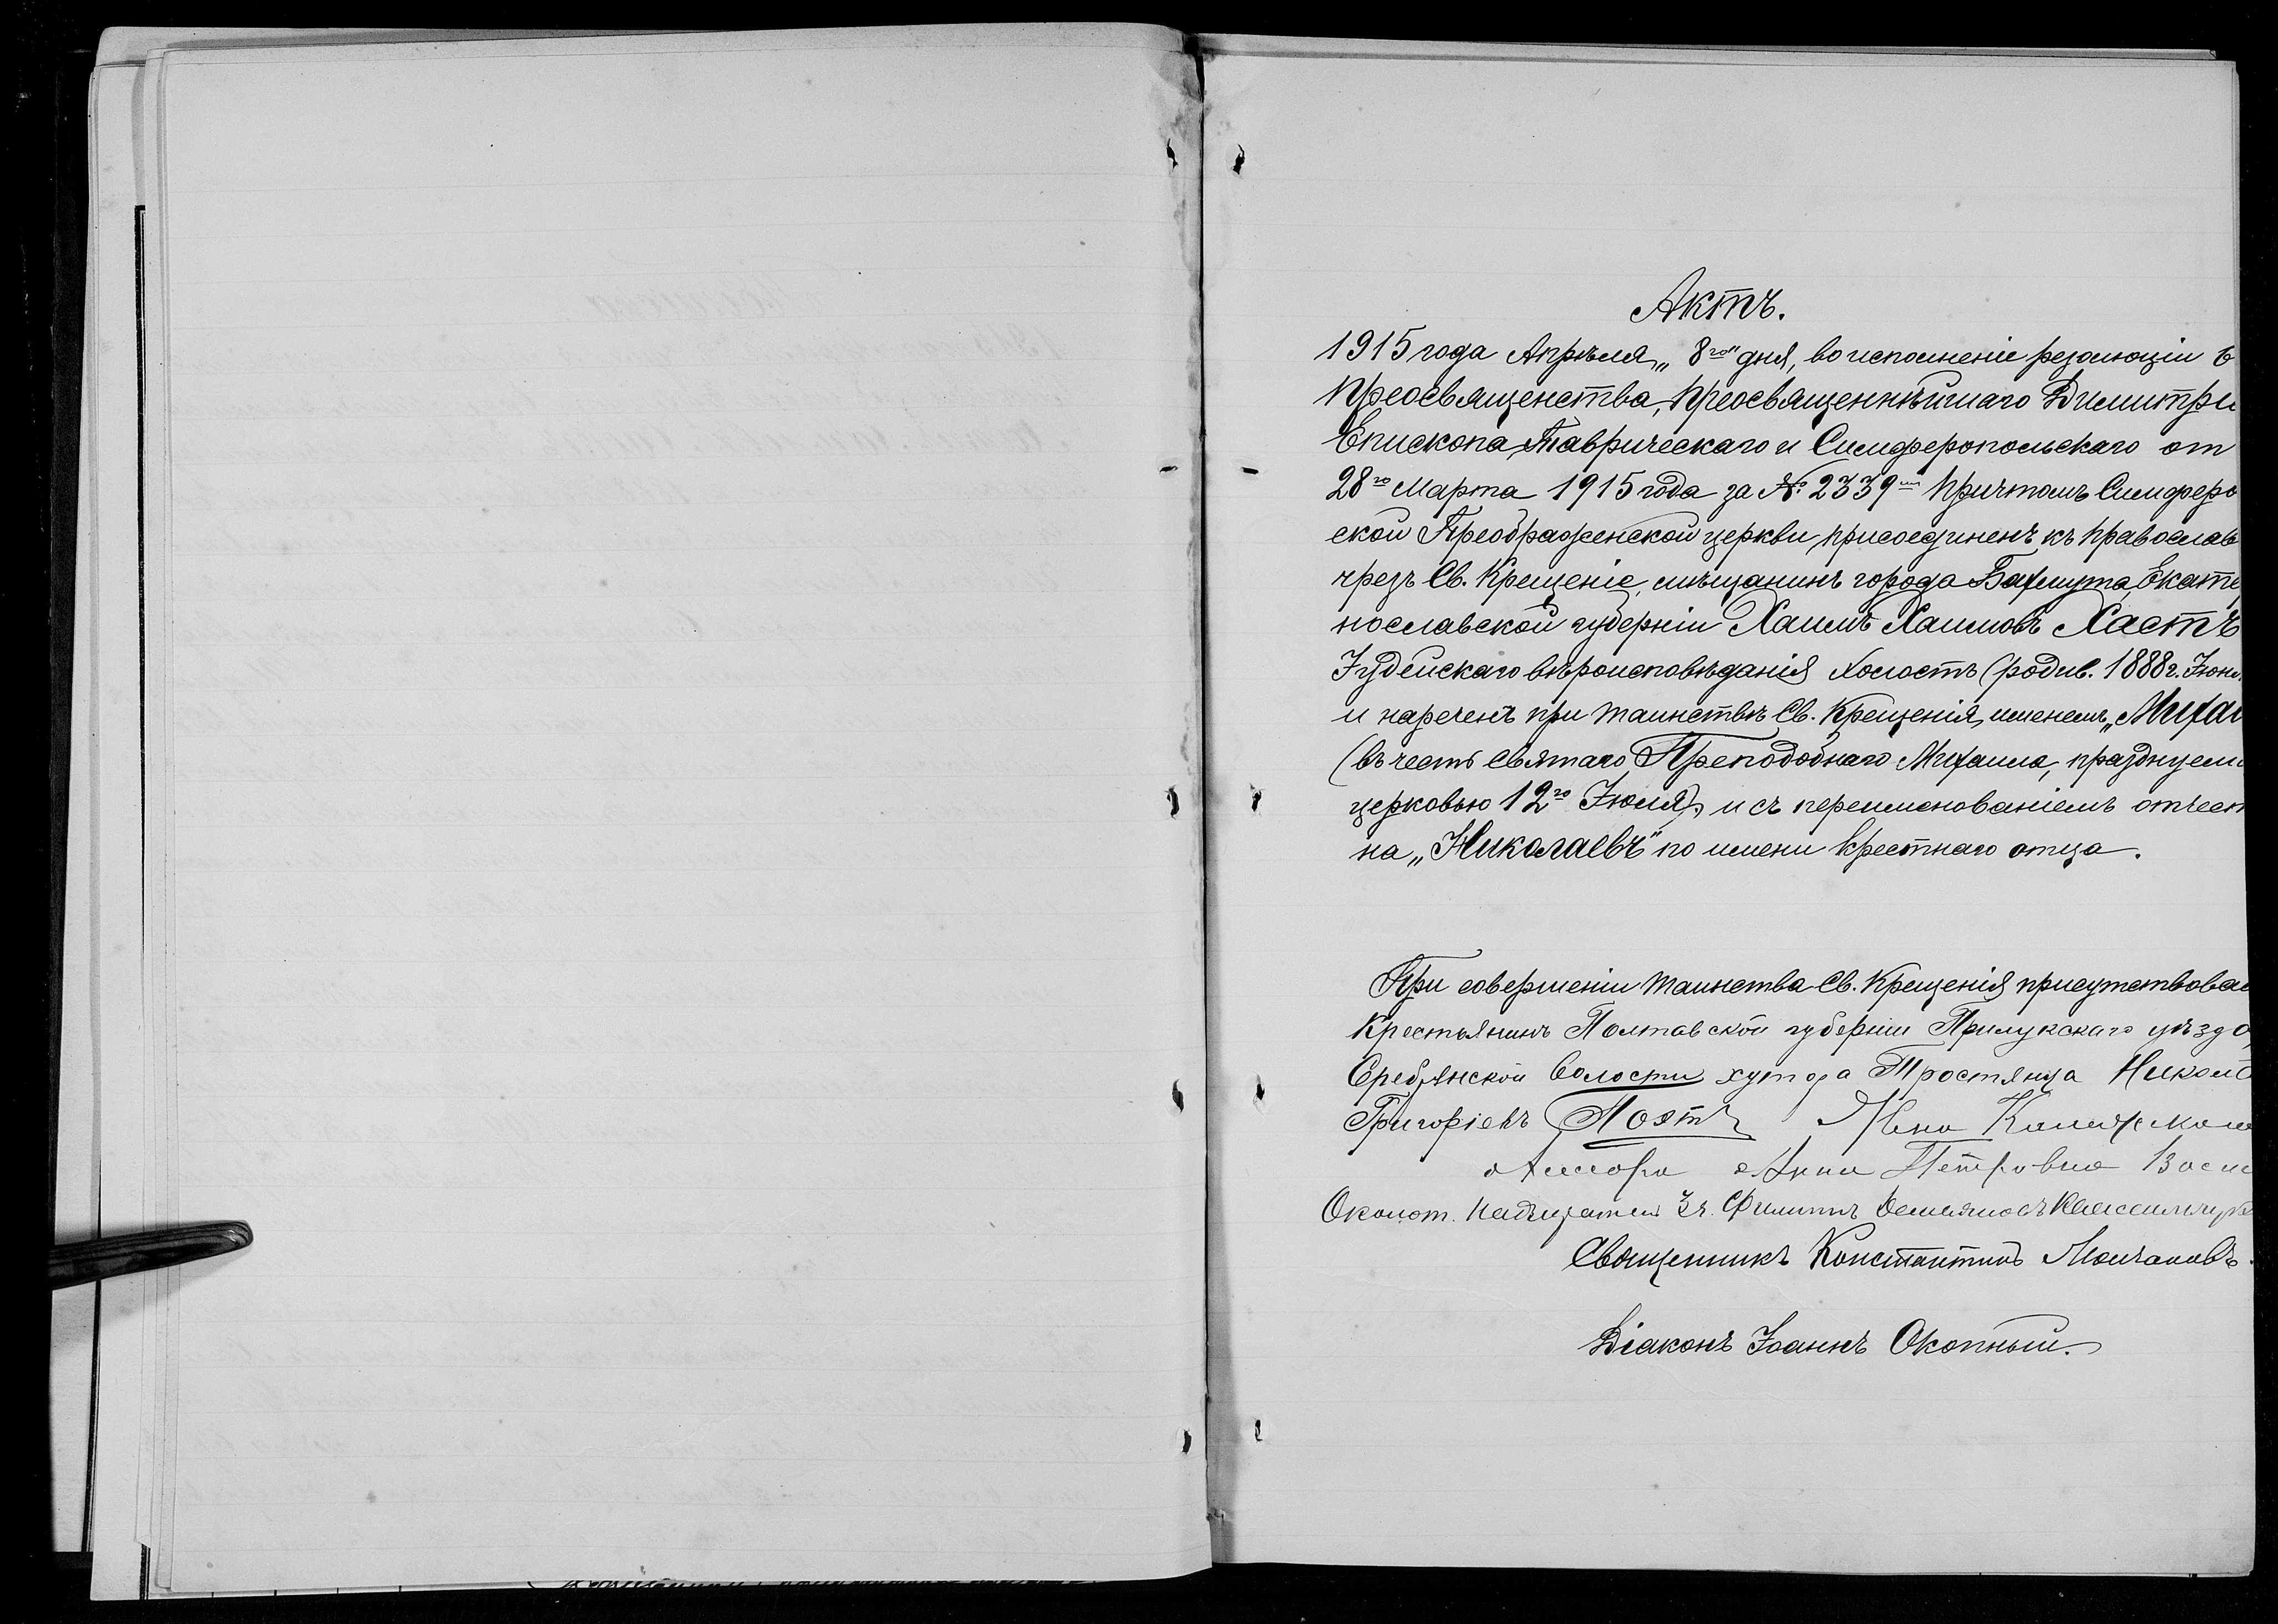 Актъ.
1915 года Апрѣля „8го" дня, во исполненіе резолюціи Е
Преосвященства, Преосвященнѣйшаго Димитрі
Епископа Таврическаго и Симферопольскаго от
28го Марта 1915 года за № 2339мъ Причтомъ Симферо
ской Преображенской церкви присоединенъ къ православ
чрезъ Св. Крещеніе, мѣщанинъ города Бахмута, Екате
нославской губерніи Хаимъ Хаимовъ Хастъ
Іудейскаго вѣроисповѣданія холостъ (родив. 1888 г. Іюн
и нареченъ при таинствѣ Св. Крещенія, именемъ „Михаи
(въ честь Святаго Преподобнаго Михаила, празднуем
церковью 12го Іюля), и съ переименованіемъ отчест
на „Николаевъ" по имени крестнаго отца.
При совершеніи таинства Св. Крещенія присутствова
Крестьянинъ Полтавской губерніи Прилукскаго уѣзда,
Сребрянской Волости хутора Тростянца Никола
Григоріевъ Поэтъ Жена
Анна Петровна
Околот. Надзирател Филиппъ Демьяновъ
Священникъ Константинъ Молчановъ.
Діаконъ Іоаннъ Окопный.